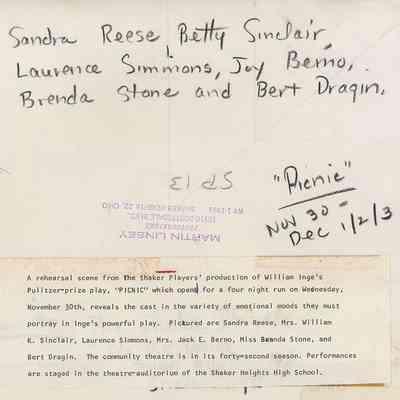 Sandra Reese, Betty Sinclair,
Laurence Simmons, Joy Berno,
Brenda Stone and Bert Dragin.
"Picnic"
Nov 30 -
Dec 1/2/3
SP 13
MARTIN LINSEY
A rehearsal scene from The Shaker Players' production of William Inge's
Pulitzer-prize play, "PICNIC" which opens for a four night run on Wednesday,
November 30th, reveals the cast in the variety of emotional moods they must
portray in Inge's powerful play. Pictured are Sandra Reese, Mrs. William
K. Sinclair, Laurence Simmons, Mrs. Jack E. Berno, Miss Brenda Stone, and
Bert Dragin. The community theatre is in its forty-second season. Performances
are staged in the theatre-auditorium of the Shaker Heights High School.